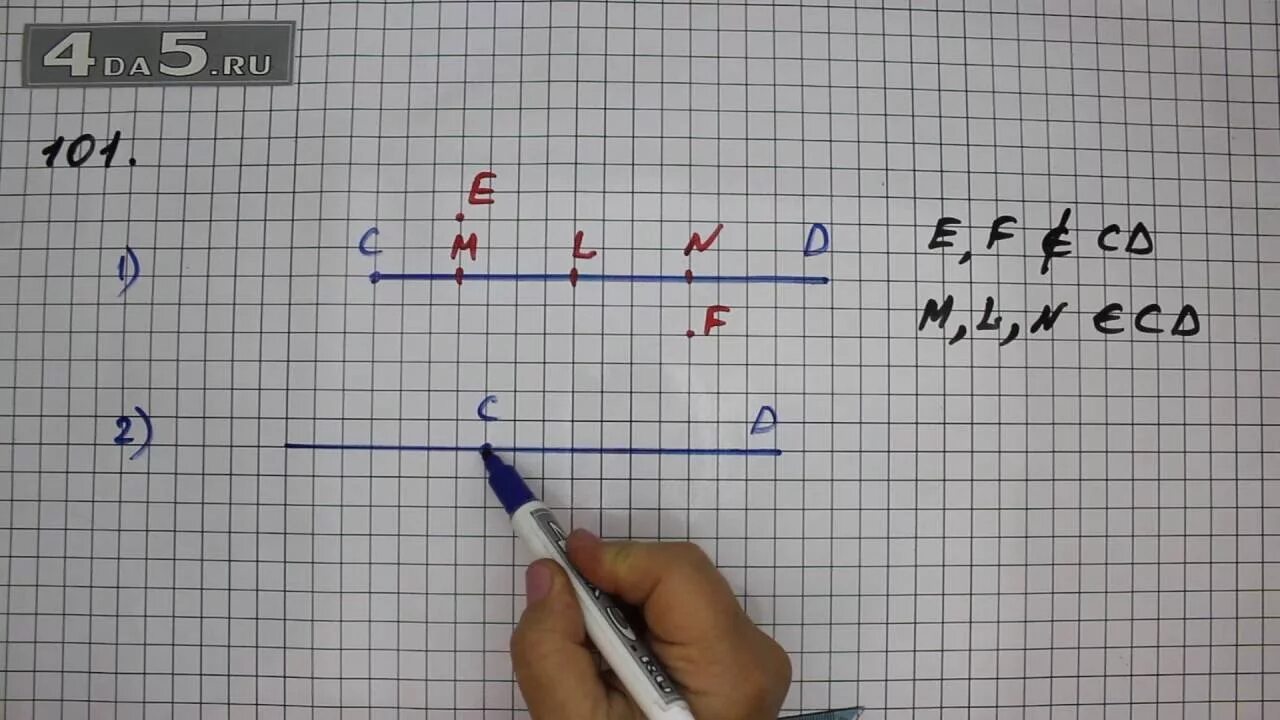 4DA5.RU
101.
E
C M L N D
1)
.F
E, F ∉ CD
M, L, N ∈ CD
2)
C D